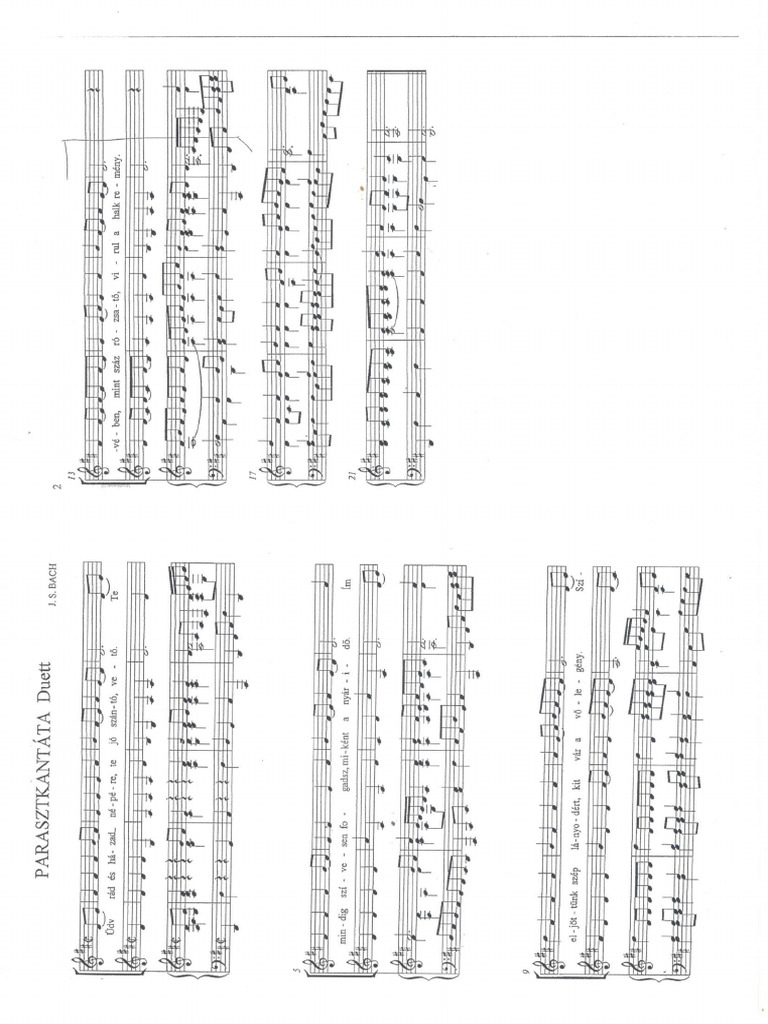 PARASZTKANTÁTA Duett
J. S. BACH
Üdv rád és há- zad_ né-pé-re, te jó szán-tó, ve - tő. Te
5
min-dig szí - ve - sen fo - gadsz, mi-ként a nyár - i - dő. Ím
9
el-jöt-tünk szép lá-nyo-dért, kit vár a vő - le - gény. Szí-
2
13
-vé - ben, mint száz ró - zsa-tő, vi - rul a halk re - mény.
17
21